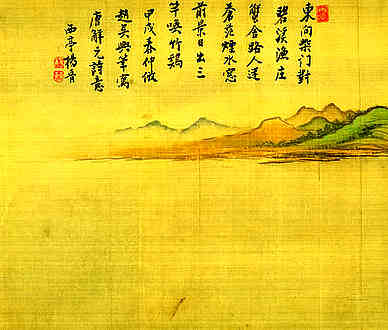 東向柴门對
碧溪漁庄
蟹舍路人迷
蒼茫煙水窓
前景日出三
竿喚竹鷄
甲戌春仲倣
趙吴興筆寫
唐解元詩意
西亭楊晉